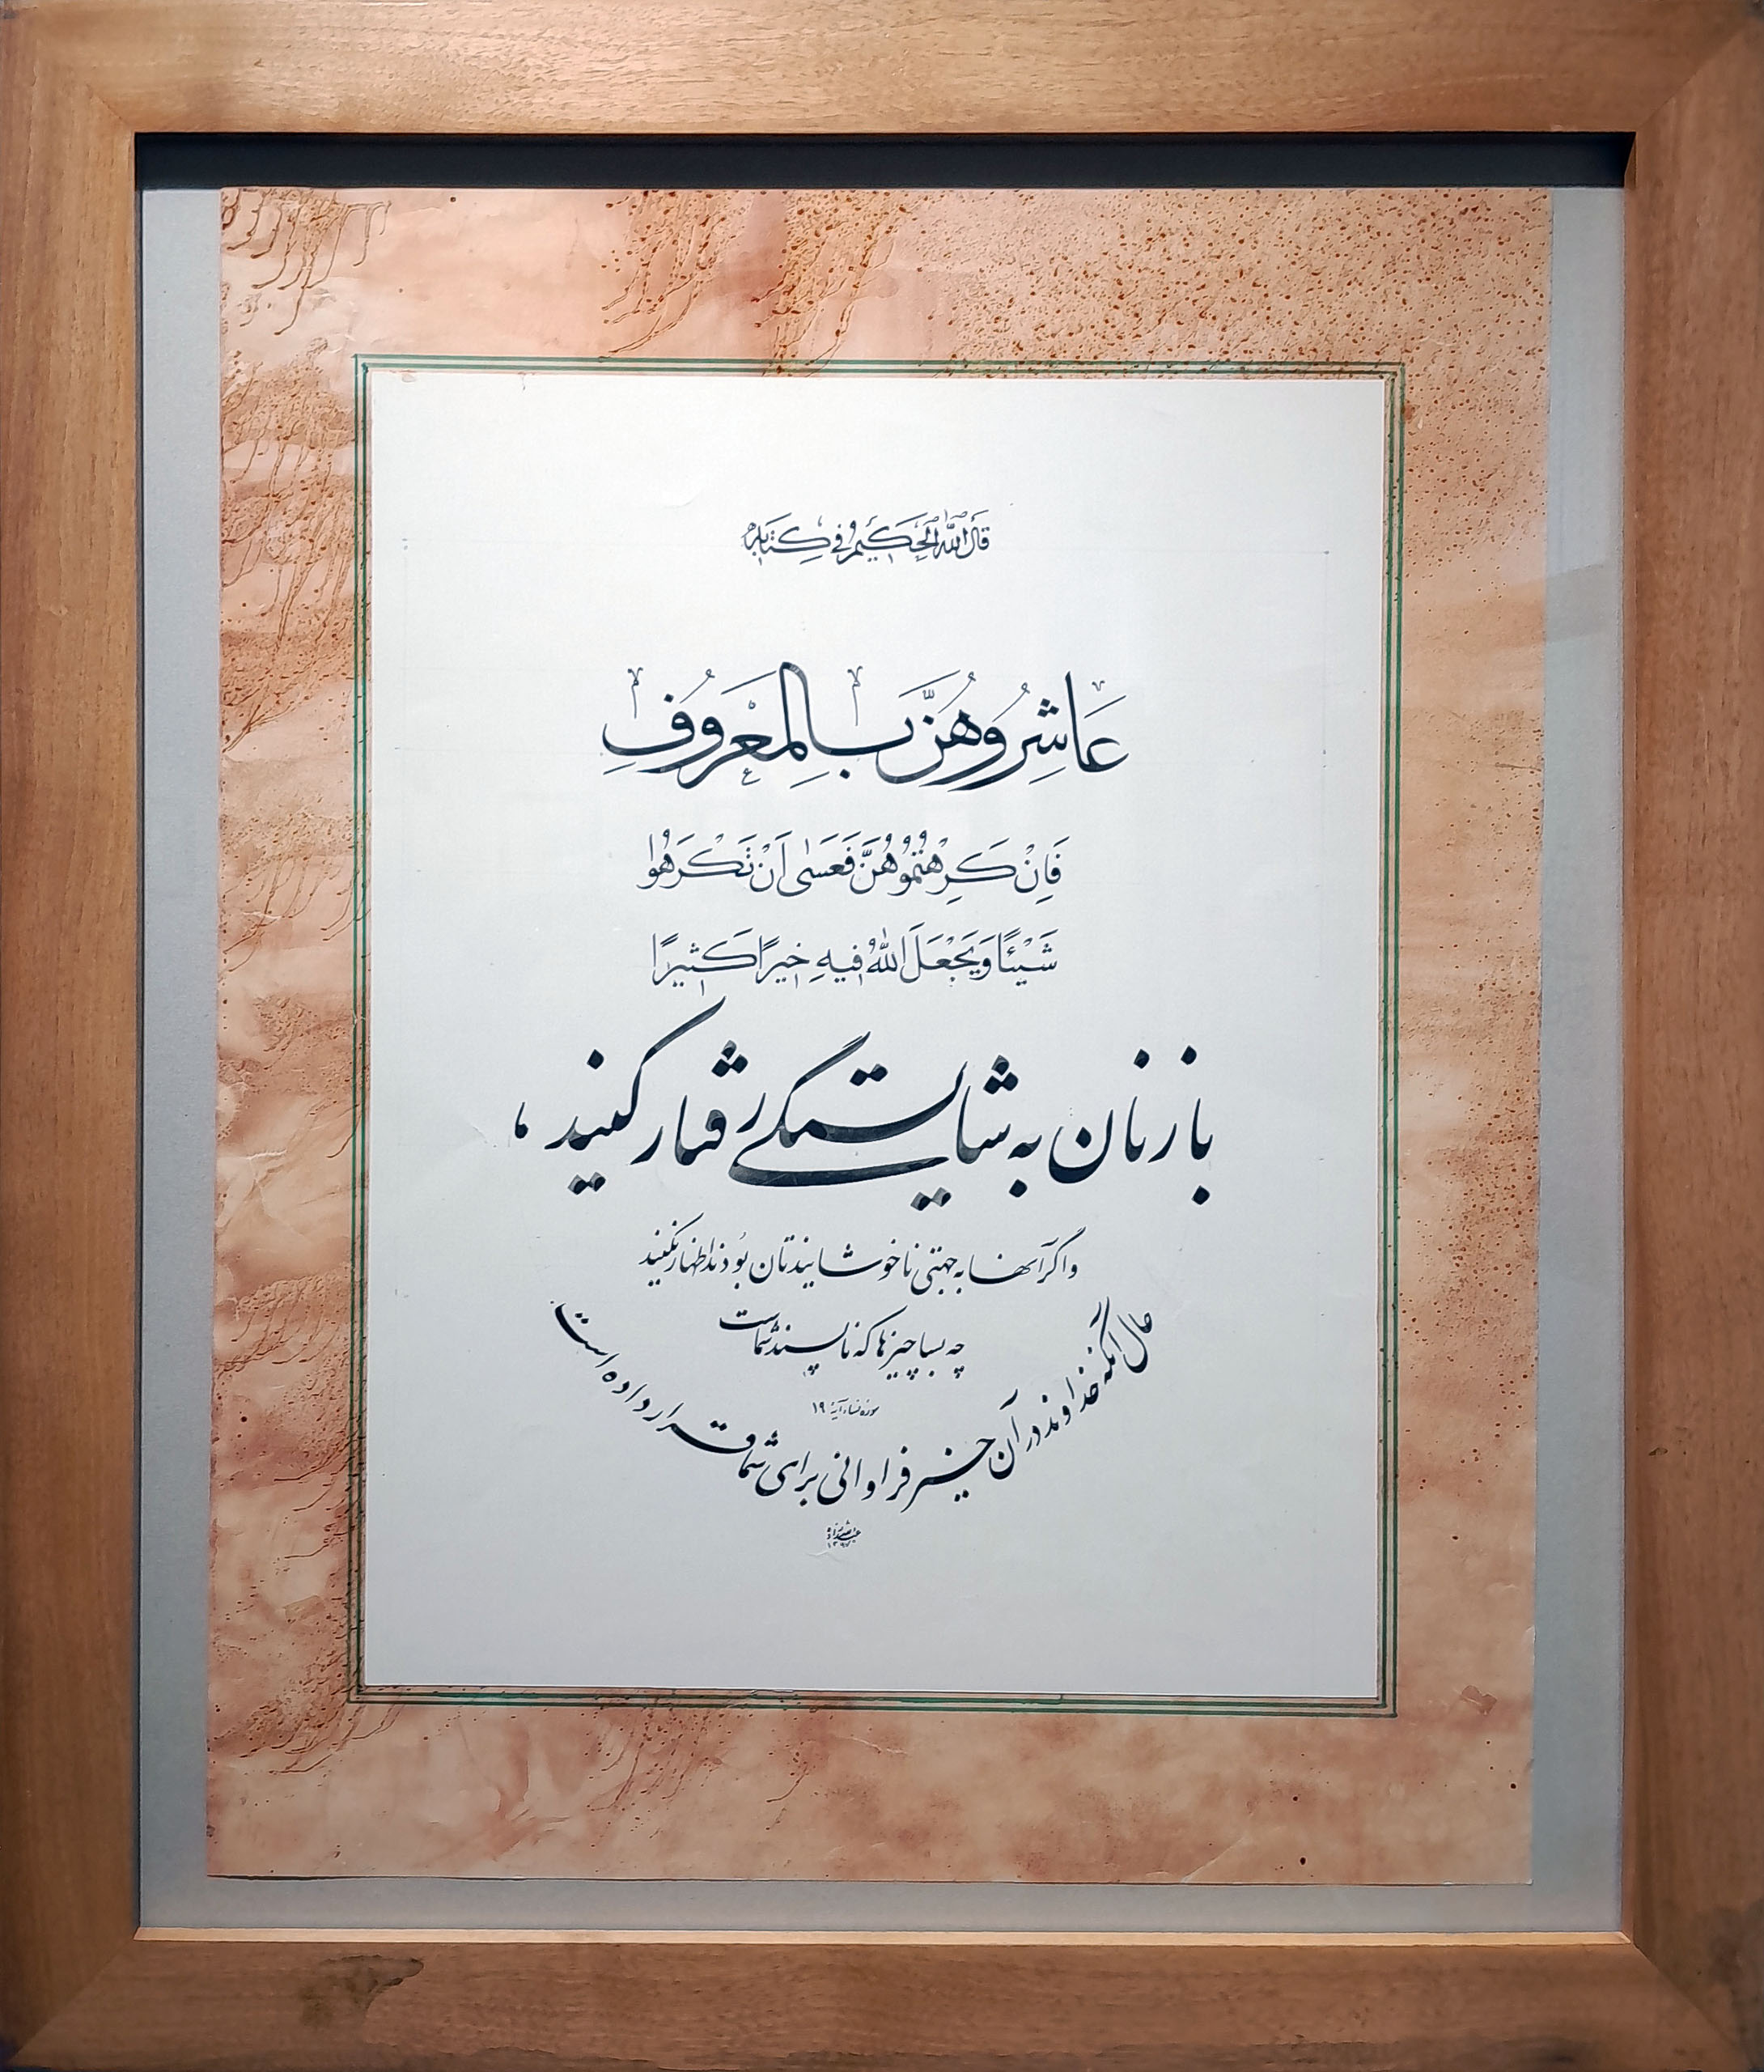 قَالَ اللهُ الْحَكِیمُ فِی كِتَابِهِ
عَاشِرُوهُنَّ بِالْمَعْرُوفِ
فَاِنْ كَرِهْتُمُوهُنَّ فَعَسَىٰ اَنْ تَكْرَهُوا
شَیْئًا وَیَجْعَلَ اللهُ فِیهِ خَیرًا كَثِیرًا
با زنان به شایستگی رفتار کنید،
و اگر آنها به جهتی ناخوشایندتان بُودند اظهار نکنید
چه بسا چیزها که ناپسند شماست
حال آنکه خداوند در آن خیر فراوانی برای شما قرار داده است
سوره نساء، آیهٔ ۱۹